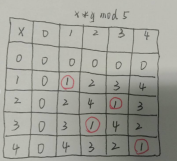 x * y mod 5
X 0 1 2 3 4
0 0 0 0 0 0
1 0 1 2 3 4
2 0 2 4 1 3
3 0 3 1 4 2
4 0 4 3 2 1